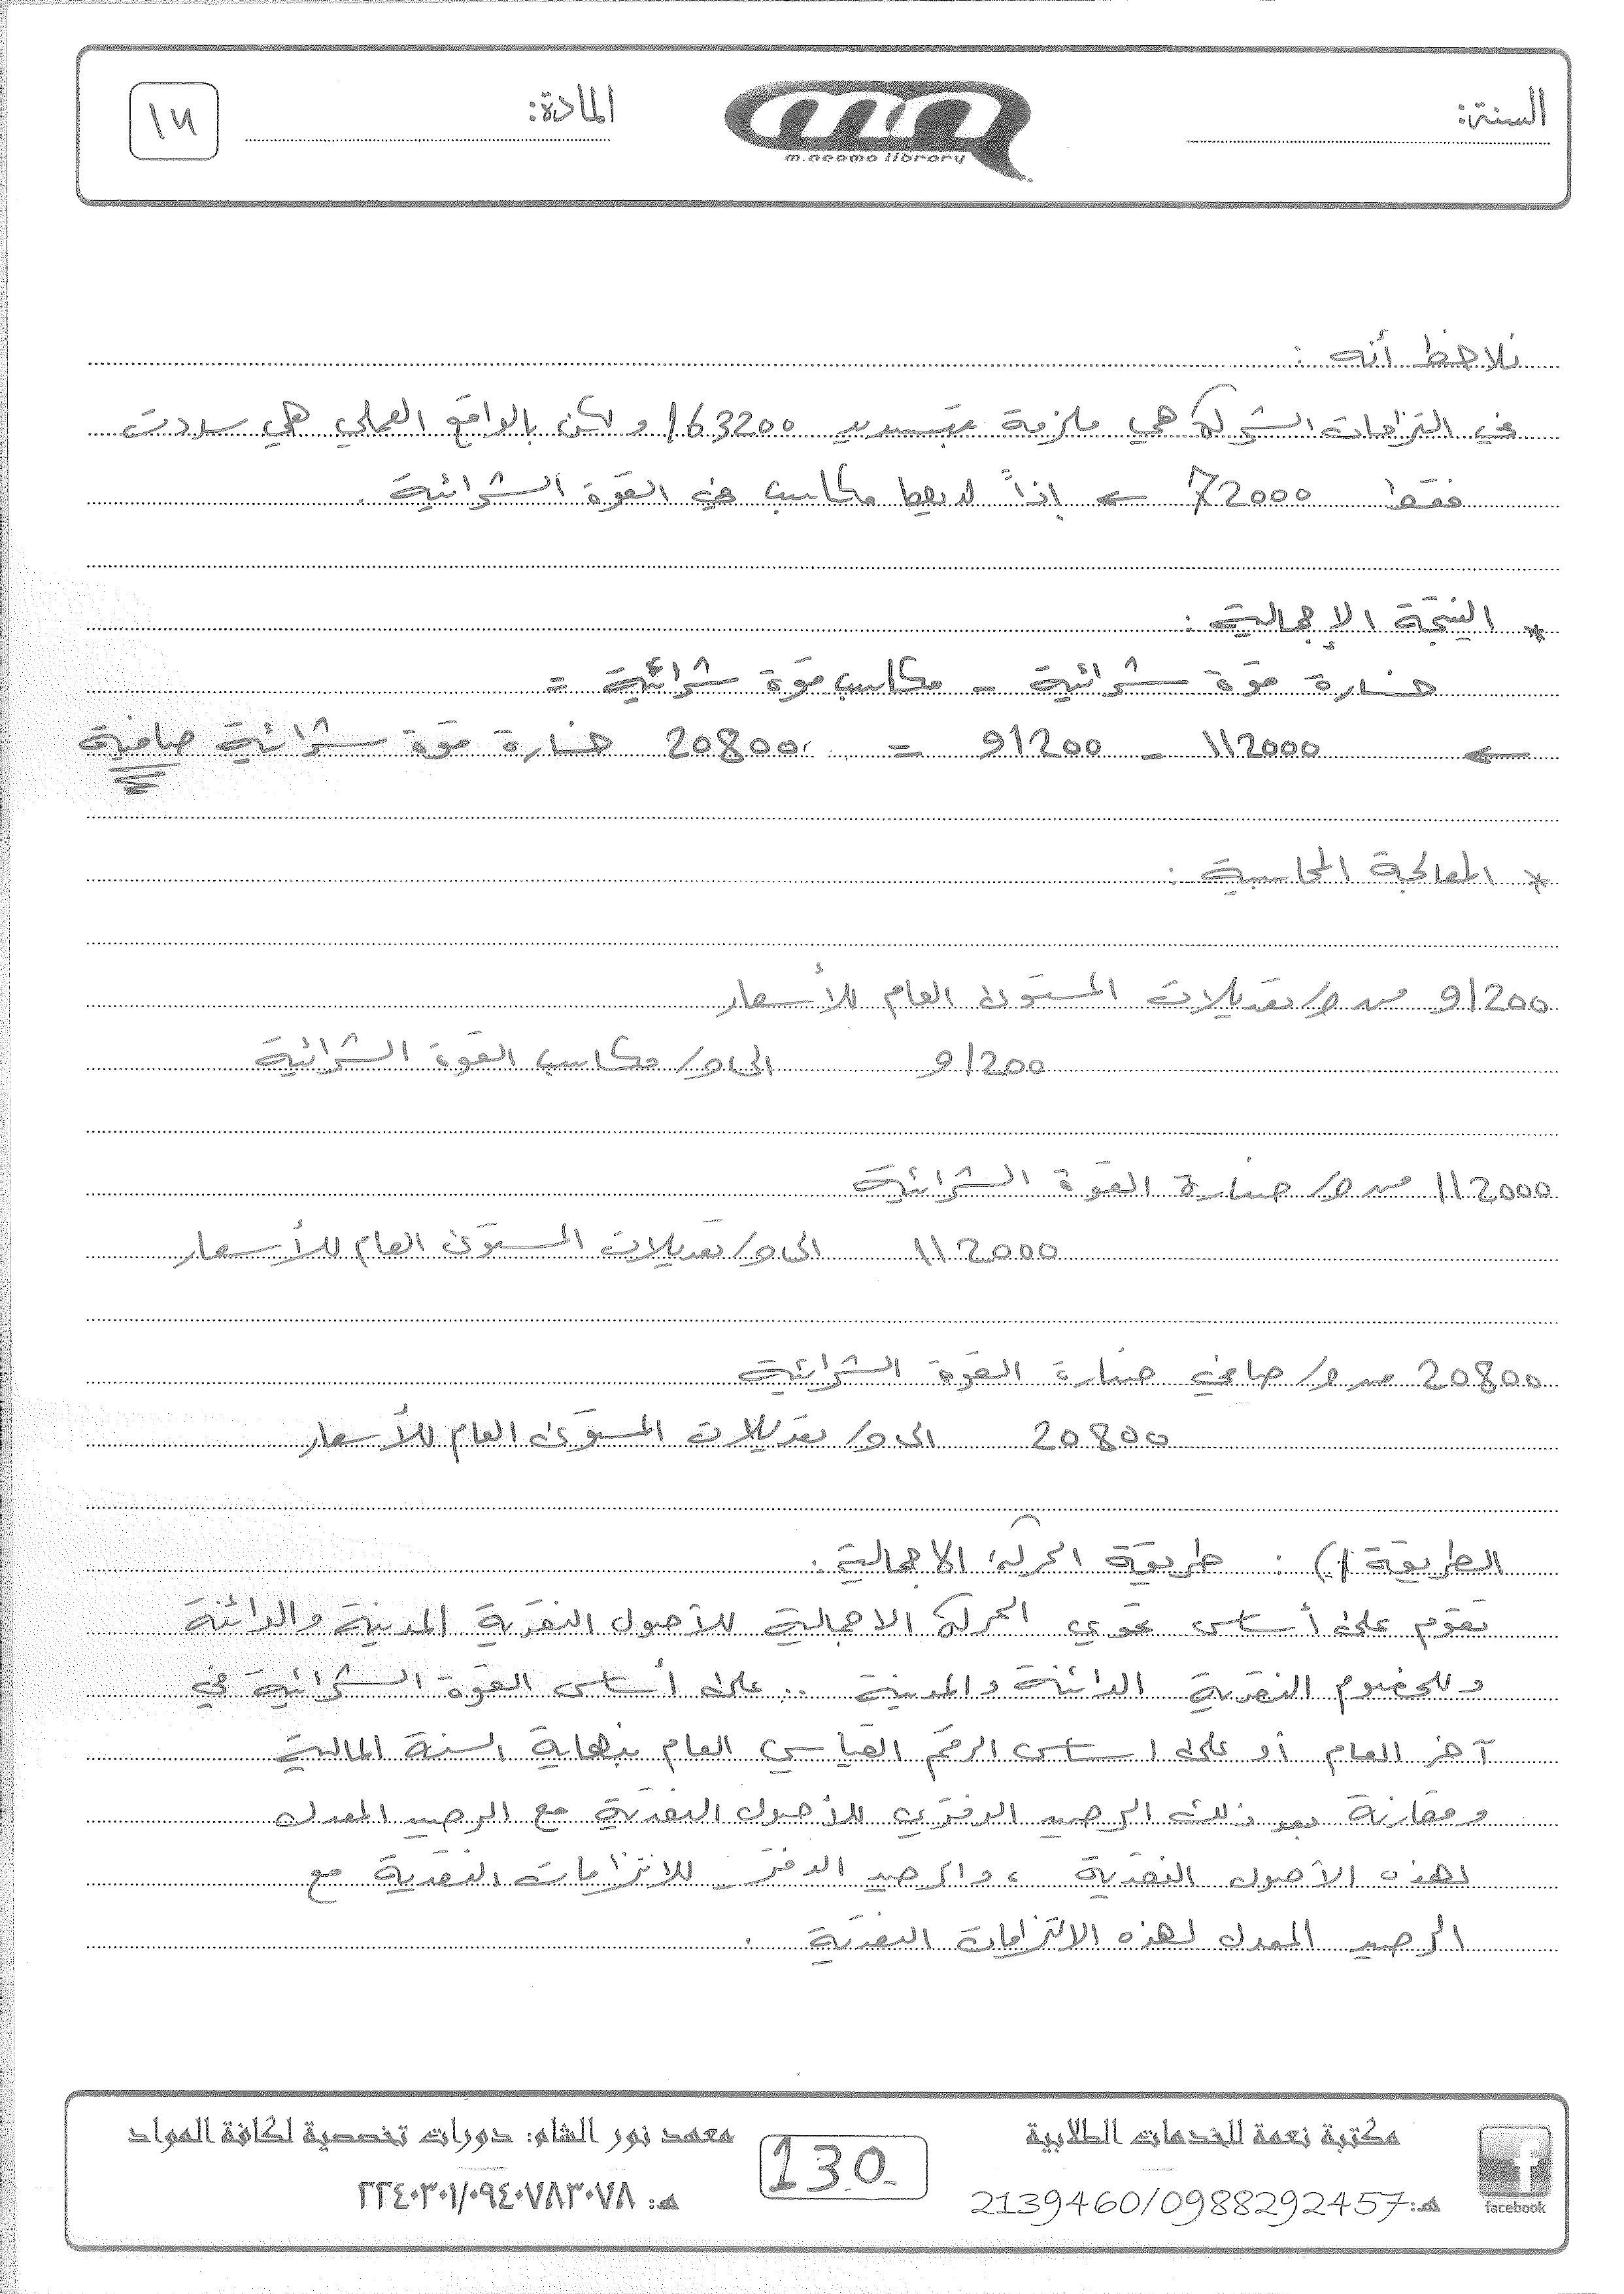 السنة:
m.neama library
المادة:
١٧
نلاحظ أنه :
في التزامات الشركة هي ملزمة بتسديد 163200 ولكن بالواقع العملي هي سددت
فقط 72000 ← إذاً لديها مكاسب في القوة الشرائية .
* النتيجة الإجمالية :
خسارة قوة شرائية - مكاسب قوة شرائية =
← 112000 - 91200 = 20800 خسارة قوة شرائية صافية
* المعالجة المحاسبية :
91200 من ح/ تعديلات المستوى العام للأسعار
91200 الى ح/ مكاسب القوة الشرائية
112000 من ح/ خسارة القوة الشرائية
112000 الى ح/ تعديلات المستوى العام للأسعار
20800 من ح/ صافي خسارة القوة الشرائية
20800 الى ح/ تعديلات المستوى العام للأسعار
الطريقة : طريقة الحركة الاجمالية :
تقوم على أساس الحركة الاجمالية للأصول النقدية المدينة والدائنة
وللخصوم النقدية الدائنة والمدينة .. على أساس القوة الشرائية في
آخر العام أو على اساس الرقم القياسي العام بنهاية السنة المالية
ومقارنة بعد ذلك الرصيد الدفتري للأصول النقدية مع الرصيد المعدل
لهذه الأصول النقدية ، والرصيد الدفتر للالتزامات النقدية مع
الرصيد المعدل لهذه الالتزامات النقدية .
مكتبة نعمة للخدمات الطلابية
هـ: 2139460/0988292457
facebook
130
معهد نور الشام: دورات تخصصية لكافة المواد
هـ: ٢٢٤٠٣٠١/٠٩٤٠٧٨٣٠٧٨